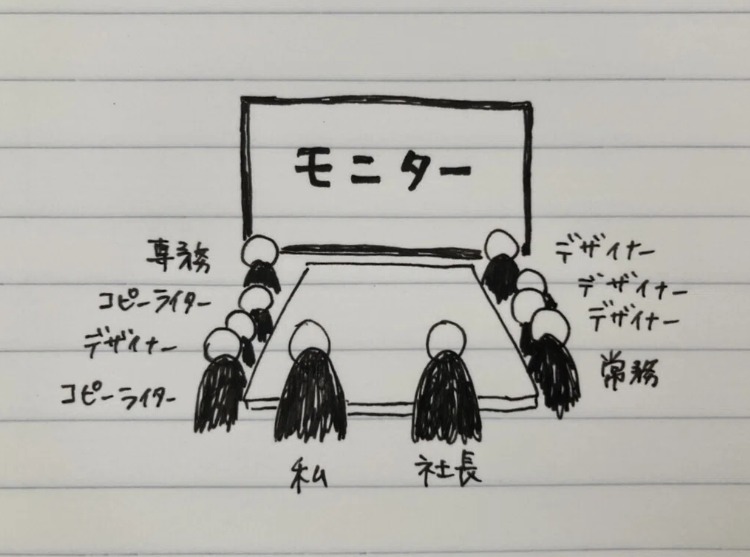 モニター
専務
コピーライター
デザイナー
コピーライター
デザイナー
デザイナー
デザイナー
常務
私
社長